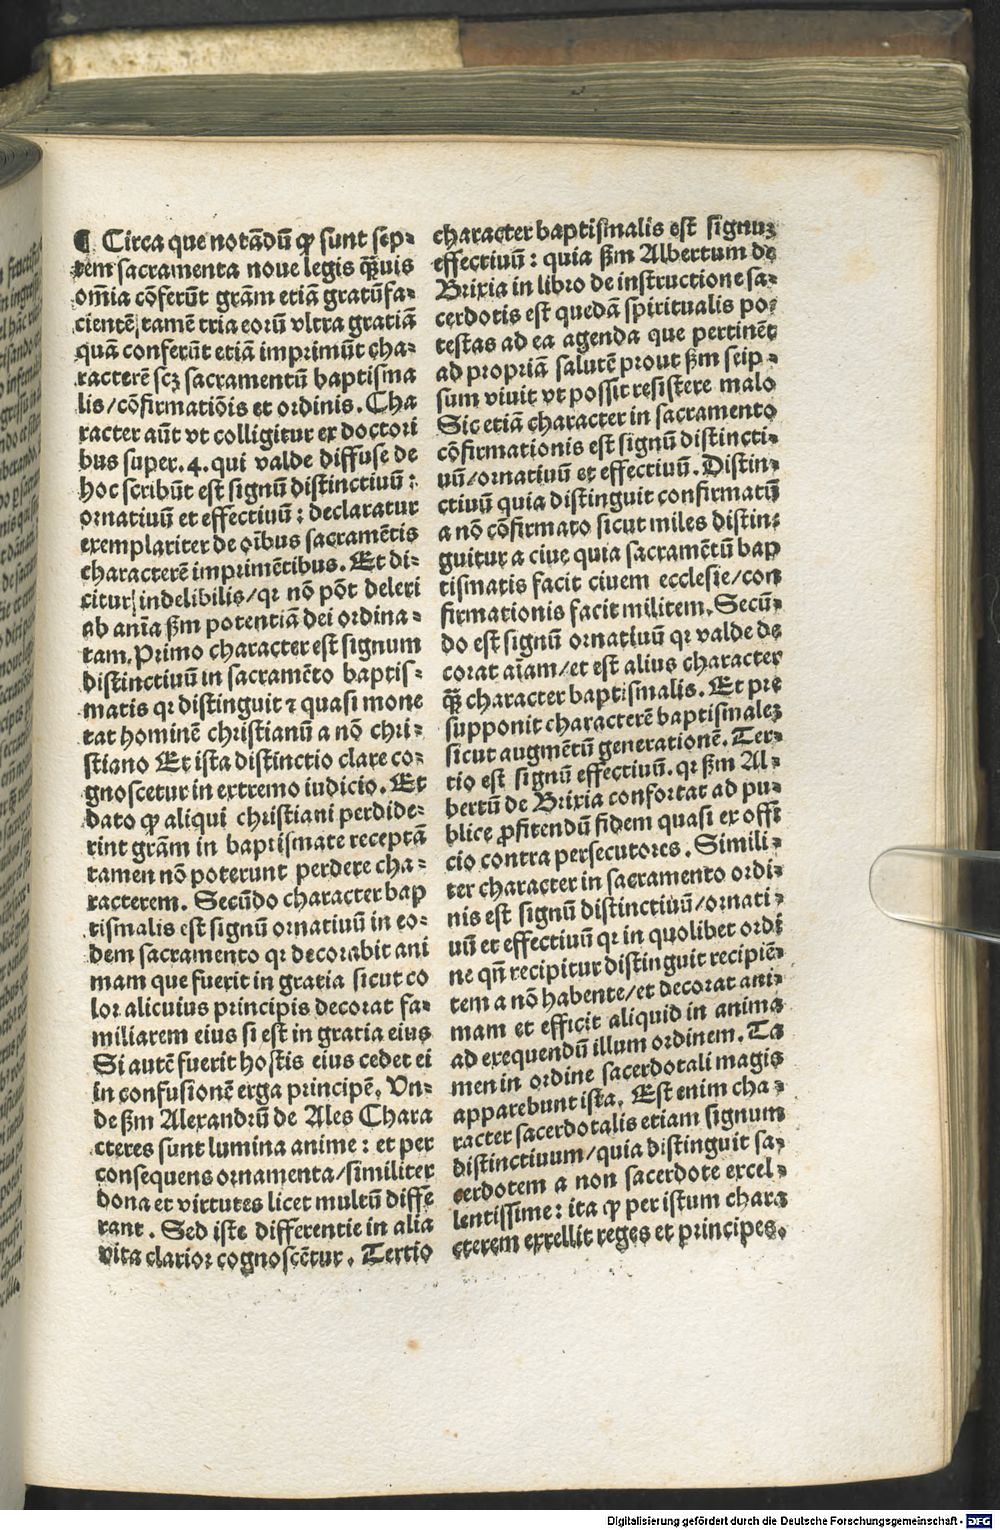 ¶ Circa que notādū ꝙ sunt sep⸗
tem sacramenta noue legis qͣꝫuis
om̄ia cōferūt grām etiā gratūfa⸗
cientē/tamē tria eorū vltra gratiā
quā conferūt etiā imprimūt cha⸗
racterē scꝫ sacramentū baptisma
lis/cōfirmatiōis et ordinis. Cha
racter aūt vt colligitur ex doctori
bus super.4. qui valde diffuse de
hoc scribūt est signū distinctiuū:
ornatiuū et effectiuū: declaratur
exemplariter de oībus sacramētis
characterē imprimētibus. Et di⸗
citur indelibilis/qꝛ nō pōt deleri
ab anīa ẞm potentiā dei ordina⸗
tam. Primo character est signum
distinctiuū in sacramēto baptis⸗
matis qꝛ distinguit ⁊ quasi mone
tat hominē christianū a nō chri⸗
stiano Et ista distinctio clare co⸗
gnoscetur in extremo iudicio. Et
dato ꝙ aliqui christiani perdide⸗
rint grām in baptismate receptā
tamen nō poterunt perdere cha⸗
racterem. Secūdo character bap
tismalis est signū ornatiuū in eo⸗
dem sacramento qꝛ decorabit ani
mam que fuerit in gratia sicut co
lor alicuius principis decorat fa⸗
miliarem eius si est in gratia eius
Si autē fuerit hostis eius cedet ei
in confusionē erga principē. Vn⸗
de ẞm Alexandrū de Ales Chara
cteres sunt lumina anime: et per
consequens ornamenta/similiter
dona et virtutes licet multū diffe
rant. Sed iste differentie in alia
vita clarior cognoscētur. Tertio
character baptismalis est signuꝫ
effectiuū: quia ẞm Albertum de
Brixia in libro de instructione sa⸗
cerdotis est quedā spiritualis po⸗
testas ad ea agenda que pertinēt
ad propriā salutē prout ẞm seip⸗
sum viuit vt possit resistere malo
Sic etiā character in sacramento
cōfirmationis est signū distincti⸗
uū/ornatiuū et effectiuū. Distin⸗
ctiuū quia distinguit confirmatū
a nō cōfirmato sicut miles distin⸗
guitur a ciue quia sacramētū bap
tismatis facit ciuem ecclesie/con
firmationis facit militem. Secū⸗
do est signū ornatiuū qꝛ valde de
corat aīam/et est alius character
qͣꝫ character baptismalis. Et pre
supponit characterē baptismaleꝫ
sicut augmētū generationē. Ter⸗
tio est signū effectiuū. qꝛ ẞm Al⸗
bertū de Brixia confortat ad pu⸗
blice ꝓfitendū fidem quasi ex offi
cio contra persecutores. Simili⸗
ter character in sacramento ordi⸗
nis est signū distinctiuū/ornati⸗
uū et effectiuū qꝛ in quolibet ordī
ne qn̄ recipitur distinguit recipiē⸗
tem a nō habente/et decorat ani⸗
mam et efficit aliquid in anima
ad exequendū illum ordinem. Ta
men in ordine sacerdotali magis
apparebunt ista. Est enim cha⸗
racter sacerdotalis etiam signum
distinctiuum/quia distinguit sa⸗
cerdotem a non sacerdote excel⸗
lentissime: ita ꝙ per istum chara
cterem excellit reges et principes.
Digitalisierung gefördert durch die Deutsche Forschungsgemeinschaft - DFG